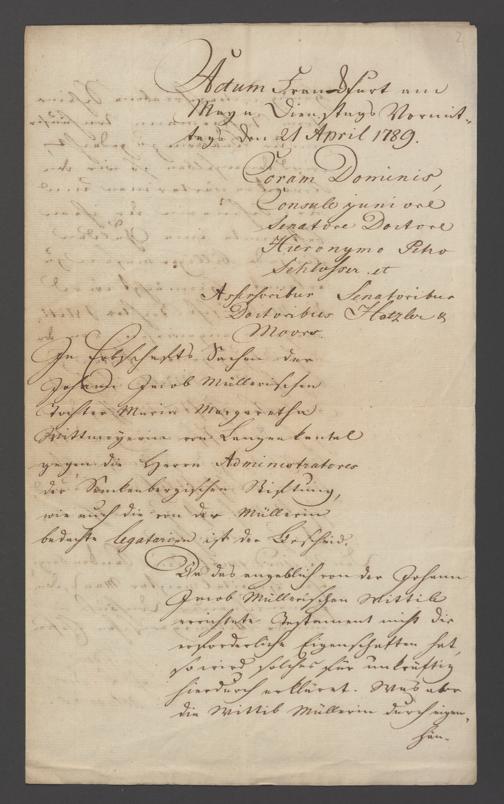 Actum Franckfurt am
Mayn Dienstags Vormit-
tags den 21 April 1789.
Coram Dominis,
Consule juniore
Senatore Doctore
Hieronymo Petro
Schlosser et
Assessoribus Senatoribus
Doctoribus Hetzler &
Moors.
In Erbschafts Sachen der
Johann Jacob Müllerischen
Tochter Maria Margaretha
von Langenkantel
gegen die Herrn Administratores
der Senkenbergischen Stiftung,
wie auch die von der Müllerin
bedachte legatarien ist der Bescheid.
Da das angeblich von der Johann
Jacob Müllerischen Wittib
errichtete Testament nicht die
erforderliche Eigenschaften hat,
so wird solches für unkräftig
hierdurch erkläret. Was aber
die Wittib Müllerin durch eigen-
hän-